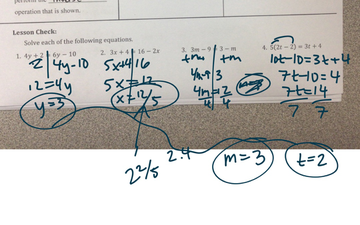 operation that is shown.
Lesson Check:
Solve each of the following equations.
1. 4y + 2 = 6y - 10
2. 3x + 4 = 16 - 2x
3. 3m - 9 = 3 - m
4. 5(2t - 2) = 3t + 4
2 | 4y-10
12=4y
y=3
5x+4 | 16
5x=12
x=12/5
2 2/5
2.4
+m | +m
4m
4 4
m=3
10t-10=3t+4
7t-10=4
7t=14
7 7
t=2